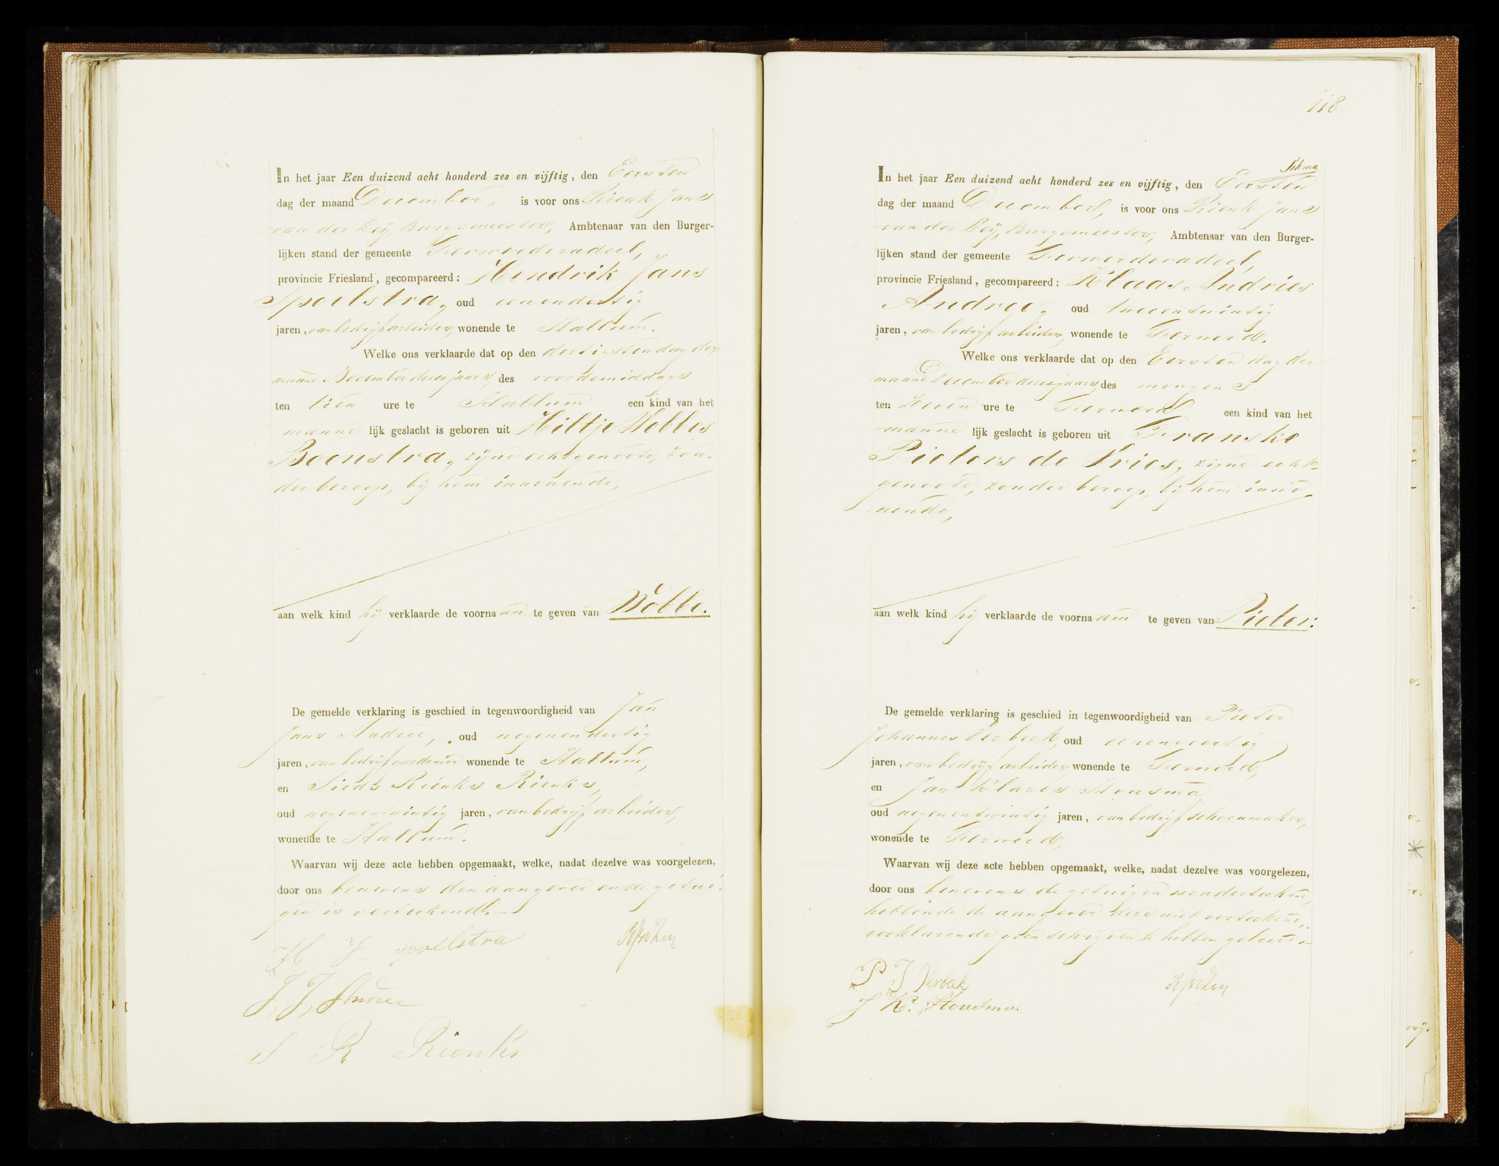 In het jaar Een duizend acht honderd zes en vijftig, den Eersten
dag der maand December, is voor ons Rienk Jans
van der Leij, Burgemeester, Ambtenaar van den Burger-
lijken stand der gemeente Ferwerderadeel,
provincie Friesland, gecompareerd: Hendrik Jans
Spoelstra, oud eenendertig
jaren, van bedrijf arbeider, wonende te Hallum.
Welke ons verklaarde dat op den dertigsten dag der
maand November dezes jaars des voordemiddags
ten tien ure te Hallum een kind van het
manne lijk geslacht is geboren uit Hiltje Wobbes
Boonstra, zijne echtgenoote, zon-
der beroep, bij hem inwonende,
aan welk kind hij verklaarde de voorna am te geven van Wobbe.
De gemelde verklaring is geschied in tegenwoordigheid van Jan
Jans Andree, oud negenendertig
jaren, van bedrijf wonende te Hallum,
en Sieds Rienks Rienks,
oud negenentwintig jaren, van bedrijf arbeider,
wonende te Hallum.
Waarvan wij deze acte hebben opgemaakt, welke, nadat dezelve was voorgelezen,
door ons benevens den aangever en de getui-
gen is verteekend.
H J Spoelstra
J. J. Andree
S R Rienks
118
In het jaar Een duizend acht honderd zes en vijftig, den Eersten
dag der maand December, is voor ons Rienk Jans
van der Leij, Burgemeester, Ambtenaar van den Burger-
lijken stand der gemeente Ferwerderadeel,
provincie Friesland, gecompareerd: Klaas Andries
Andree, oud tweeentwintig
jaren, van bedrijf arbeider, wonende te Ferwerd.
Welke ons verklaarde dat op den Eersten dag der
maand December dezes jaars des morgens
ten zeven ure te Ferwerd een kind van het
manne lijk geslacht is geboren uit Franske
Pieters de Vries, zijne echt-
genoote, zonder beroep, bij hem inwo-
nende,
aan welk kind hij verklaarde de voorna am te geven van Pieter.
De gemelde verklaring is geschied in tegenwoordigheid van Pieter
Johannes Verbeek, oud
jaren, van bedrijf arbeider wonende te Ferwerd,
en Jan Klazes Housma,
oud negenentwintig jaren, van bedrijf schoenmaker,
wonende te Ferwerd.
Waarvan wij deze acte hebben opgemaakt, welke, nadat dezelve was voorgelezen,
door ons benevens de getuigen is onderteekend,
hebbende de aangever deze niet verteekend,
verklarende geen schrijven te hebben geleerd.
P J Verbeek
J Kl. Housma